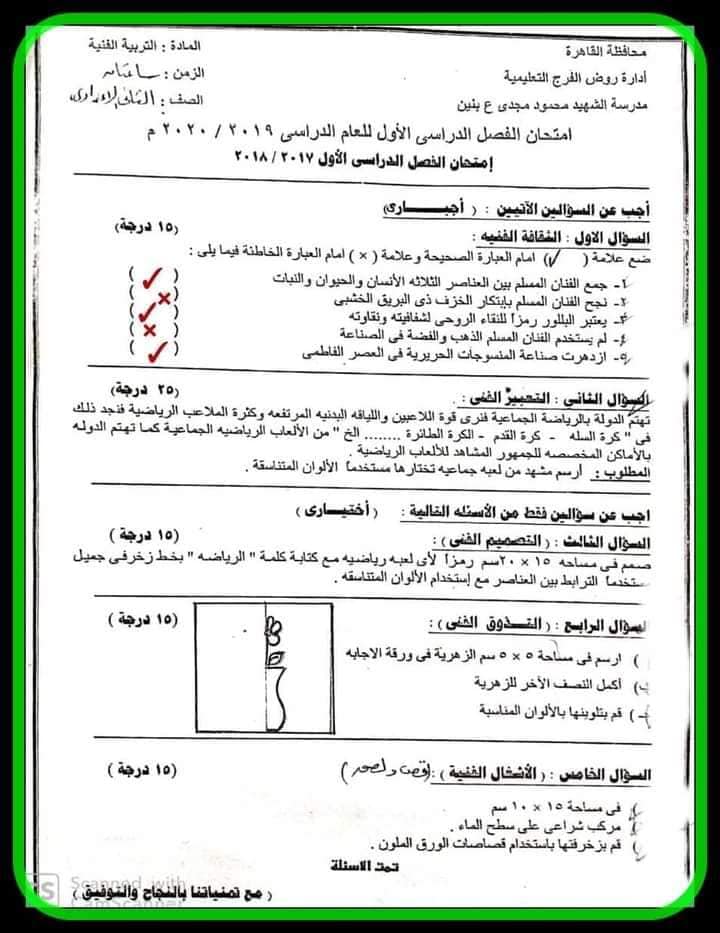 محافظة القاهرة
المادة : التربية الفنية
أدارة روض الفرج التعليمية
الزمن : ساعتان
مدرسة الشهيد محمود مجدى ع بنين
الصف : الثانى الإعدادى
امتحان الفصل الدراسى الأول للعام الدراسى ٢٠١٩ / ٢٠٢٠ م
إمتحان الفصل الدراسى الأول ٢٠١٧ / ٢٠١٨
أجب عن السؤالين الآتيين : ( أجبـــارى)
السؤال الاول : الثقافة الفنيه : (١٥ درجة)
ضع علامة ( √) امام العبارة الصحيحة وعلامة ( × ) امام العبارة الخاطئة فيما يلى :
١- جمع الفنان المسلم بين العناصر الثلاثه الأنسان والحيوان والنبات ( ✓ )
٢- نجح الفنان المسلم بإبتكار الخزف ذى البريق الخشبى ( × )
٣- يعتبر البللور رمزاً للنقاء الروحى لشفافيته ونقاوته ( ✓ )
٤- لم يستخدم الفنان المسلم الذهب والفضة فى الصناعة ( × )
٥- ازدهرت صناعة المنسوجات الحريرية فى العصر الفاطمى ( ✓ )
السؤال الثانى : التعبير الفنى : (٢٥ درجة)
تهتم الدولة بالرياضة الجماعية فنرى قوة اللاعبين واللياقه البدنيه المرتفعه وكثرة الملاعب الرياضية فنجد ذلك
فى " كرة السله - كرة القدم - الكرة الطائرة ........ الخ " من الألعاب الرياضيه الجماعية كما تهتم الدوله
بالأماكن المخصصه للجمهور المشاهد للألعاب الرياضية .
المطلوب : أرسم مشهد من لعبه جماعيه تختارها مستخدماً الألوان المتناسقة .
اجب عن سؤالين فقط من الأسئله التالية : ( أختيـــارى )
السؤال الثالث : ( التصميم الفنى ) : (١٥ درجة )
صمم فى مساحه ١٥ × ٢٠سم رمزاً لأى لعبه رياضيه مع كتابة كلمة " الرياضه " بخط زخرفى جميل
ستخدماً الترابط بين العناصر مع إستخدام الألوان المتناسقه .
السؤال الرابع : ( التـــذوق الفنى ) : (١٥ درجة )
) ارسم فى مساحة ٥ × ٥ سم الزهرية فى ورقة الاجابه
) أكمل النصف الأخر للزهرية
) قم بتلوينها بالألوان المناسبة
السؤال الخامس : ( الأشغال الفنية ) : (قص ولصق) (١٥ درجة )
) فى مساحة ١٥ × ١٠ سم
) مركب شراعى على سطح الماء .
) قم بزخرفتها باستخدام قصاصات الورق الملون .
تمت الاسئلة
( مع تمنياتنا بالنجاح والتوفيق )
Scanned with
CamScanner